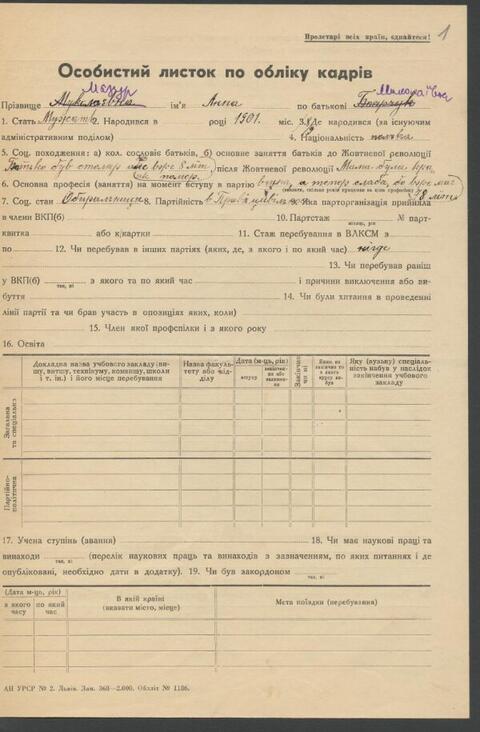 1
Пролетарі всіх країн, єднайтеся!
Особистий листок по обліку кадрів
Мазур
Миколаївна
Прізвище ім'я Анна по батькові
1. Стать 2. Народився в році 1901. міс. 3. Де народився (за існуючим
адміністративним поділом) 4. Національність полька
5. Соц. походження: а) кол. сословіє батьків, б) основне заняття батьків до Жовтневої революції
Батько був столяр після Жовтневої революції
6. Основна професія (заняття) на момент вступу в партію
7. Соц. стан 8. Партійність Яка парторганізація прийняла
в члени ВКП(б) 10. Партстаж № парт-
місяць, рік
квитка або к/картки 11. Стаж перебування в ВЛКСМ з
по 12. Чи перебував в інших партіях (яких, де, з якого і по який час) нігде
13. Чи перебував раніш
у ВКП(б) з якого та по який час і причини виключення або ви-
так, ні
буття 14. Чи були хитання в проведенні
лінії партії та чи брав участь в опозиціях яких, коли)
15. Член якої профспілки і з якого року
16. Освіта
Докладна назва учбового закладу (ви-
шу, втишу, технікуму, комвишу, школи
і т. ін.) і його місце перебування
Назва факуль-
тету або від-
ділу
Дата (м-ць, рік)
вступу
Закінчив
чи ні
Яку (вузьку) спеціаль-
ність набув у наслідок
закінчення учбового
закладу
Загальна
та спеціальна
Партійно-
політична
17. Учена ступінь (звання) 18. Чи має наукові праці та
винаходи (перелік наукових праць та винаходів з зазначенням, по яких питаннях і де
так, ні
опубліковані, необхідно дати в додатку). 19. Чи був закордоном
так, ні
(Дата м-ць, рік)
з якого
часу
по який
час
В якій країні
(вказати місто, місце)
Мета поїздки (перебування)
АН УРСР № 2. Львів. Зам. 368—2.000. Обліт № 1186.